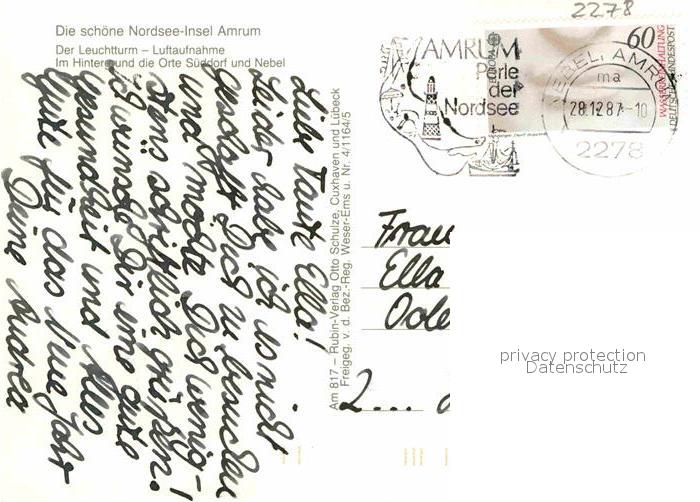 Die schöne Nordsee-Insel Amrum
Der Leuchtturm – Luftaufnahme
Im Hintergrund die Orte Süddorf und Nebel
Liebe Tante Ella!
Leider habe ich es nicht
geschafft Dich zu besuchen
und möchte Dich wenig-
stens schriftlich grüßen.
Ich wünsche Dir eine gute
Gesundheit und Alles
Gute für das Neue Jahr
Deine Andrea
Am 817 – Rubin-Verlag Otto Schulze, Cuxhaven und Lübeck
Freigeg. v. d. Bez.-Reg. Weser-Ems u. Nr. 4/1164/5
2278
AMRUM
Perle
der
Nordsee
60
EUROPA
DEUTSCHE BUNDESPOST
NEBEL, AMRUM
ma
28.12.87-10
2278
Frau
Ella
2....
privacy protection
Datenschutz